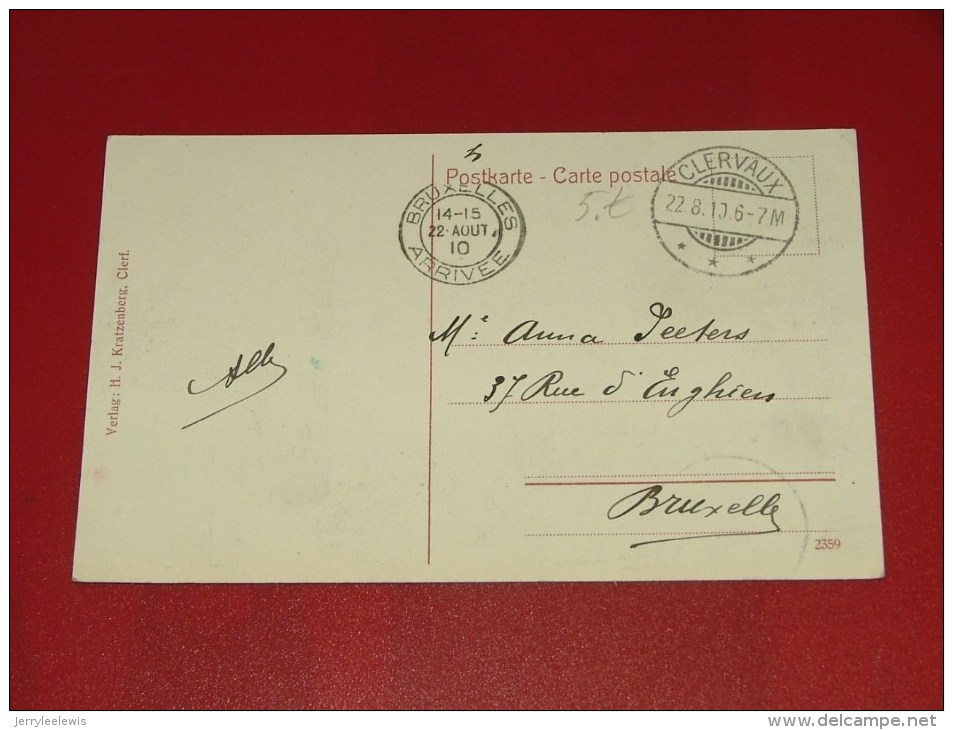 Postkarte - Carte postale
BRUXELLES
14-15
22·AOUT
10
ARRIVEE
CLERVAUX
22.8.10.6-7M
5.-
Verlag: H. J. Kratzenberg, Clerf.
Me Anna Peeters
37 Rue d'Enghien
Bruxelles
2359
jerryleelewis
www.delcampe.net